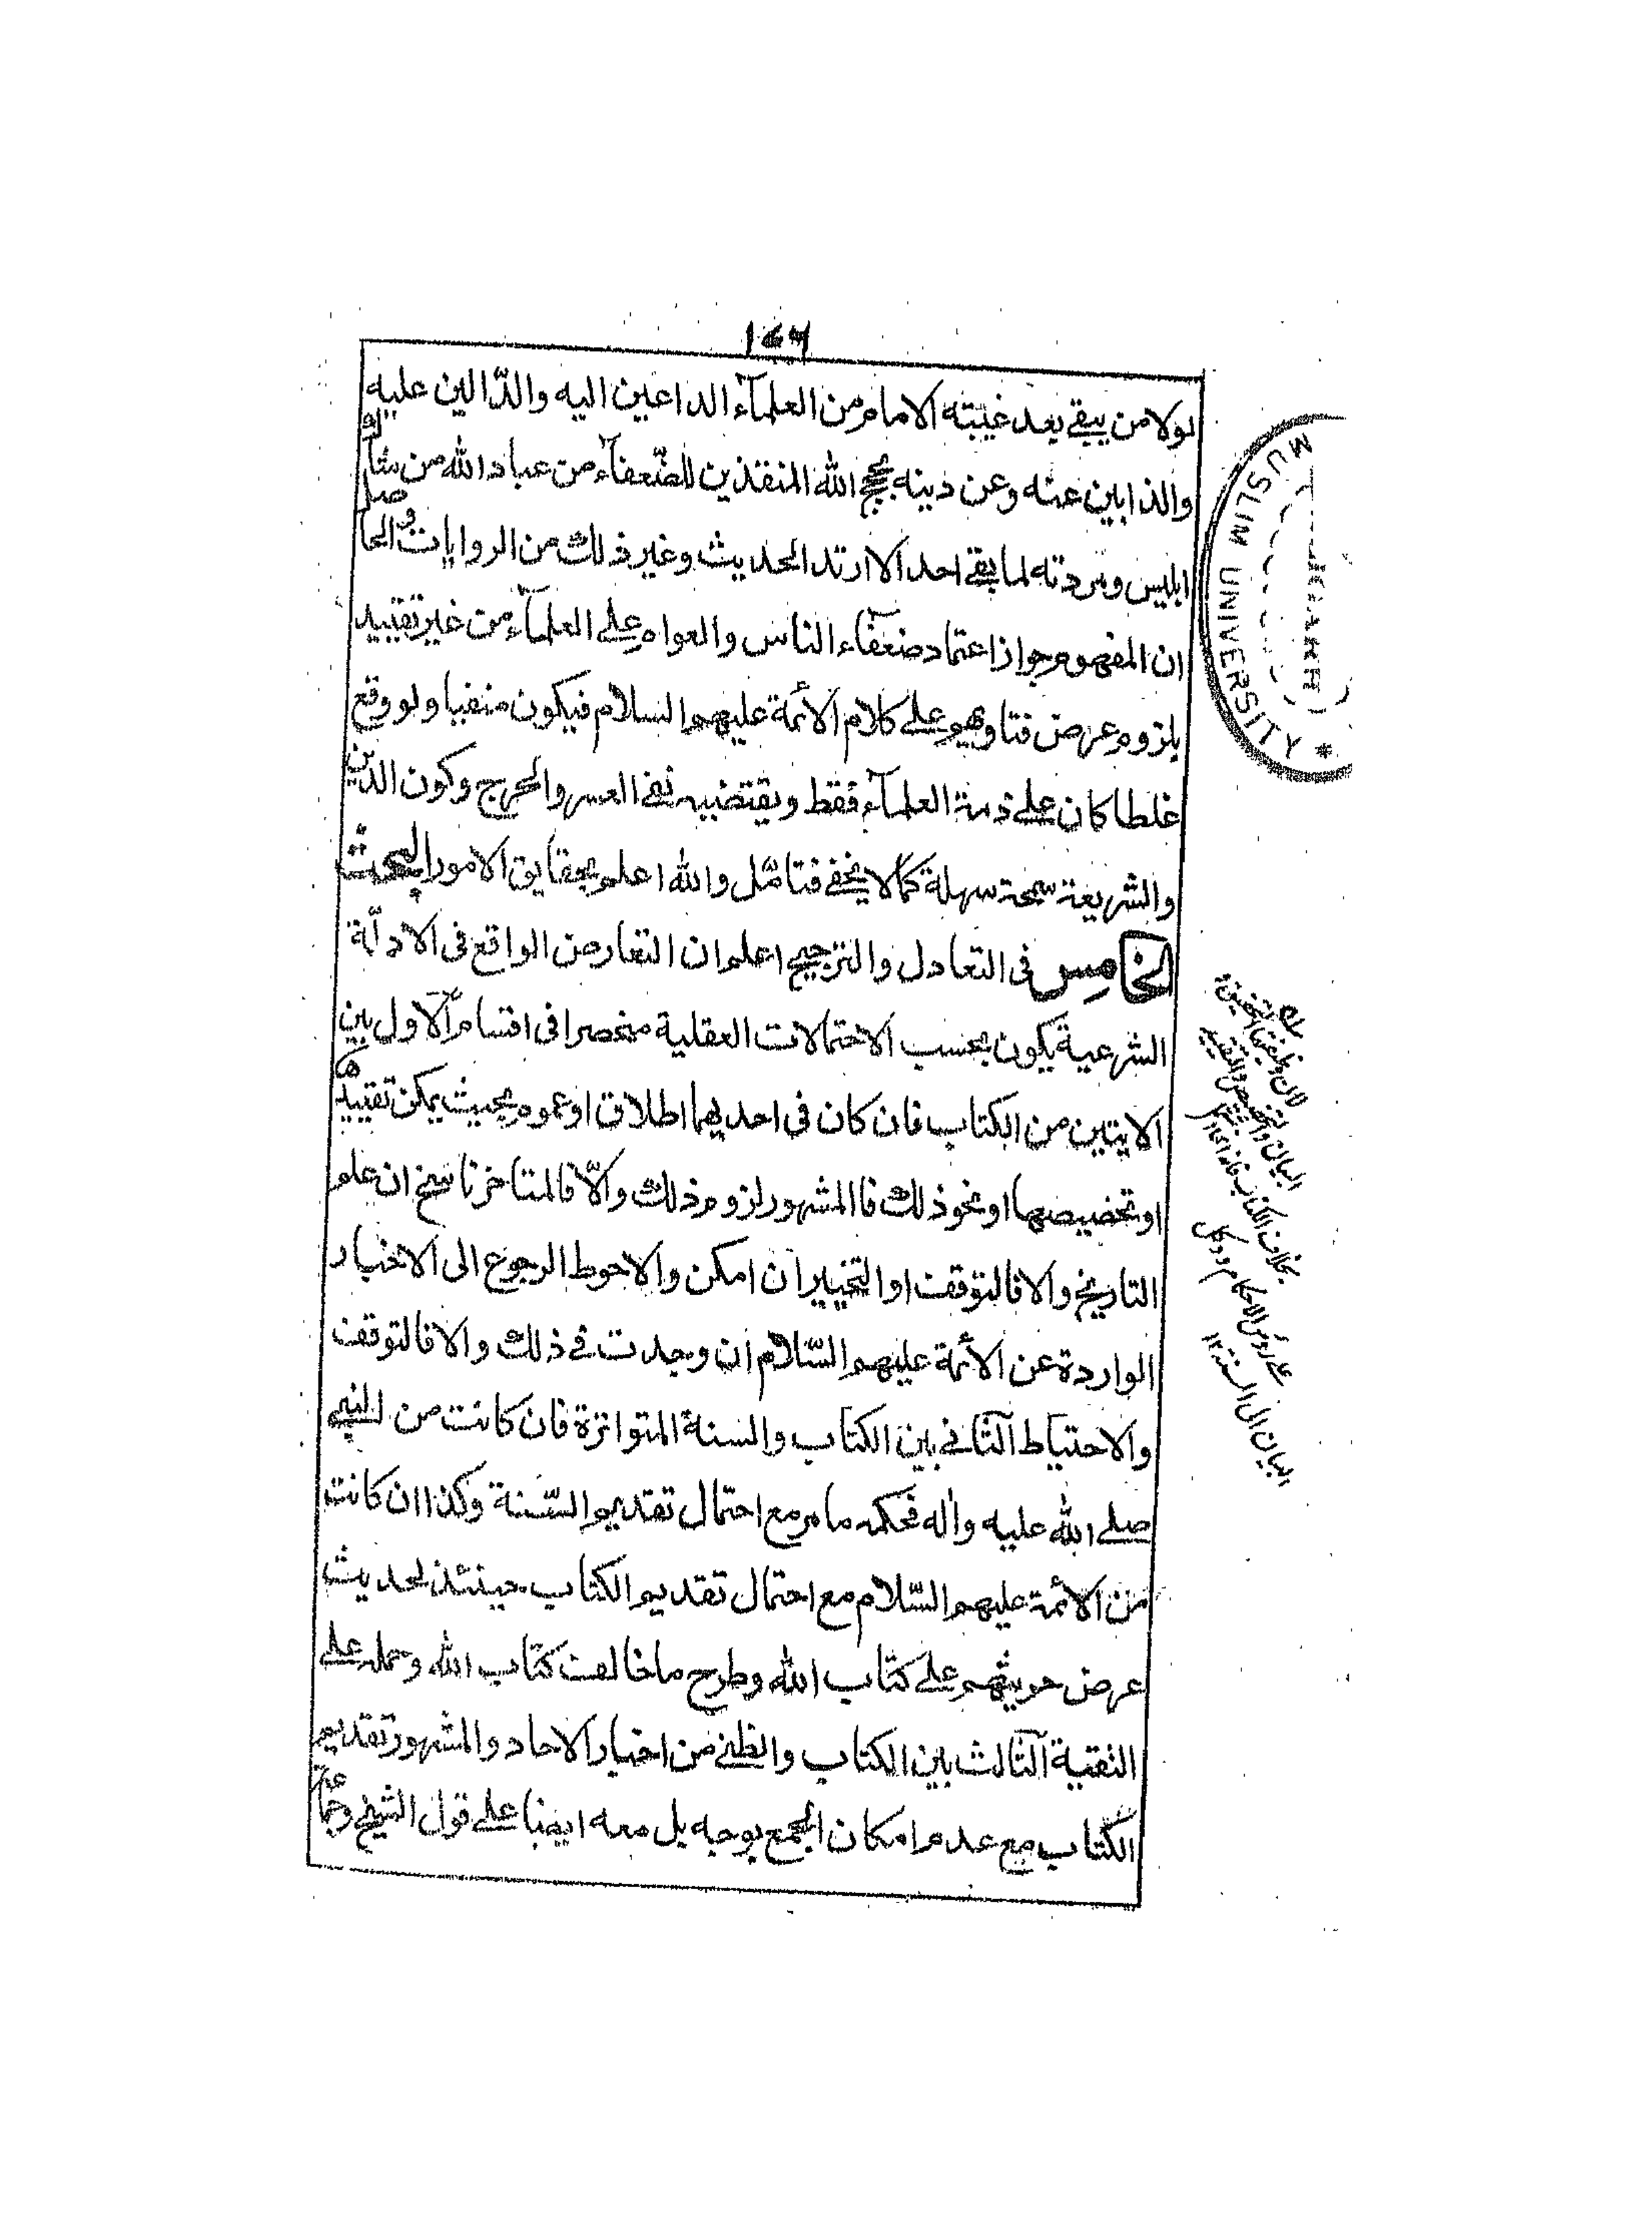 ۱۶۶
لولا من يبقى بعد غيبته الامام من العلمآء الداعين اليه والدّالين عليه
والذابين عنه وعن دينه بحجج الله المنقذين للضّعفآء من عباد الله من شباك
ابليس ومردته لما بقى احد الا ارتد الحديث وغير ذلك من الروايات والحاصل
ان المفهوم جواز اعتماد ضعفآء الناس والعوام على العلمآء من غير تقييد
بلزوم عرض فتاويهم على كلام الأئمة عليهم السلام فيكون منفيا ولو وقع
غلطا كان على ذمة العلمآء فقط ويقتضيه نفى العسر والحرج وكون الدين
والشريعة سمحة سهلة كما لا يخفى فتامّل والله اعلم بحقايق الامور البحث
الخامس فى التعادل والترجيح اعلم ان التعارض الواقع فى الادلّة
الشرعية يكون بحسب الاحتمالات العقلية منحصرا فى اقسام الاول بين
الايتين من الكتاب فان كان فى احديهما اطلاق او عموم بحيث يمكن تقييدها
او تخصيصها او نحو ذلك فالمشهور لزوم ذلك والّا فالمتاخر ناسخ ان علم
التاريخ والا فالتوقف او التخيير ان امكن والاحوط الرجوع الى الاخبار
الواردة عن الأئمة عليهم السّلام ان وجدت فى ذلك والا فالتوقف
والاحتياط الثانى بين الكتاب والسنة المتواترة فان كانت من النبى
صلى الله عليه واله فحكمه ما مر مع احتمال تقديم السّنة وكذا ان كانت
من الأئمة عليهم السّلام مع احتمال تقديم الكتاب حينئذ لحديث
عرض حديثهم على كتاب الله وطرح ما خالف كتاب الله وحمله على
التقية الثالث بين الكتاب والظنى من اخبار الاحاد والمشهور تقديم
الكتاب مع عدم امكان الجمع بوجه بل معه ايضا على قول الشيخ وجماعة
MUSLIM UNIVERSITY *
البيان والتخصيص والتقييد
بخلاف الكتاب
على رؤس الاحكام ووكل
البيان الى السنة ۱۲